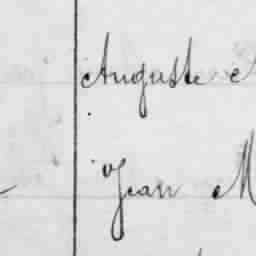 Auguste
Jean M